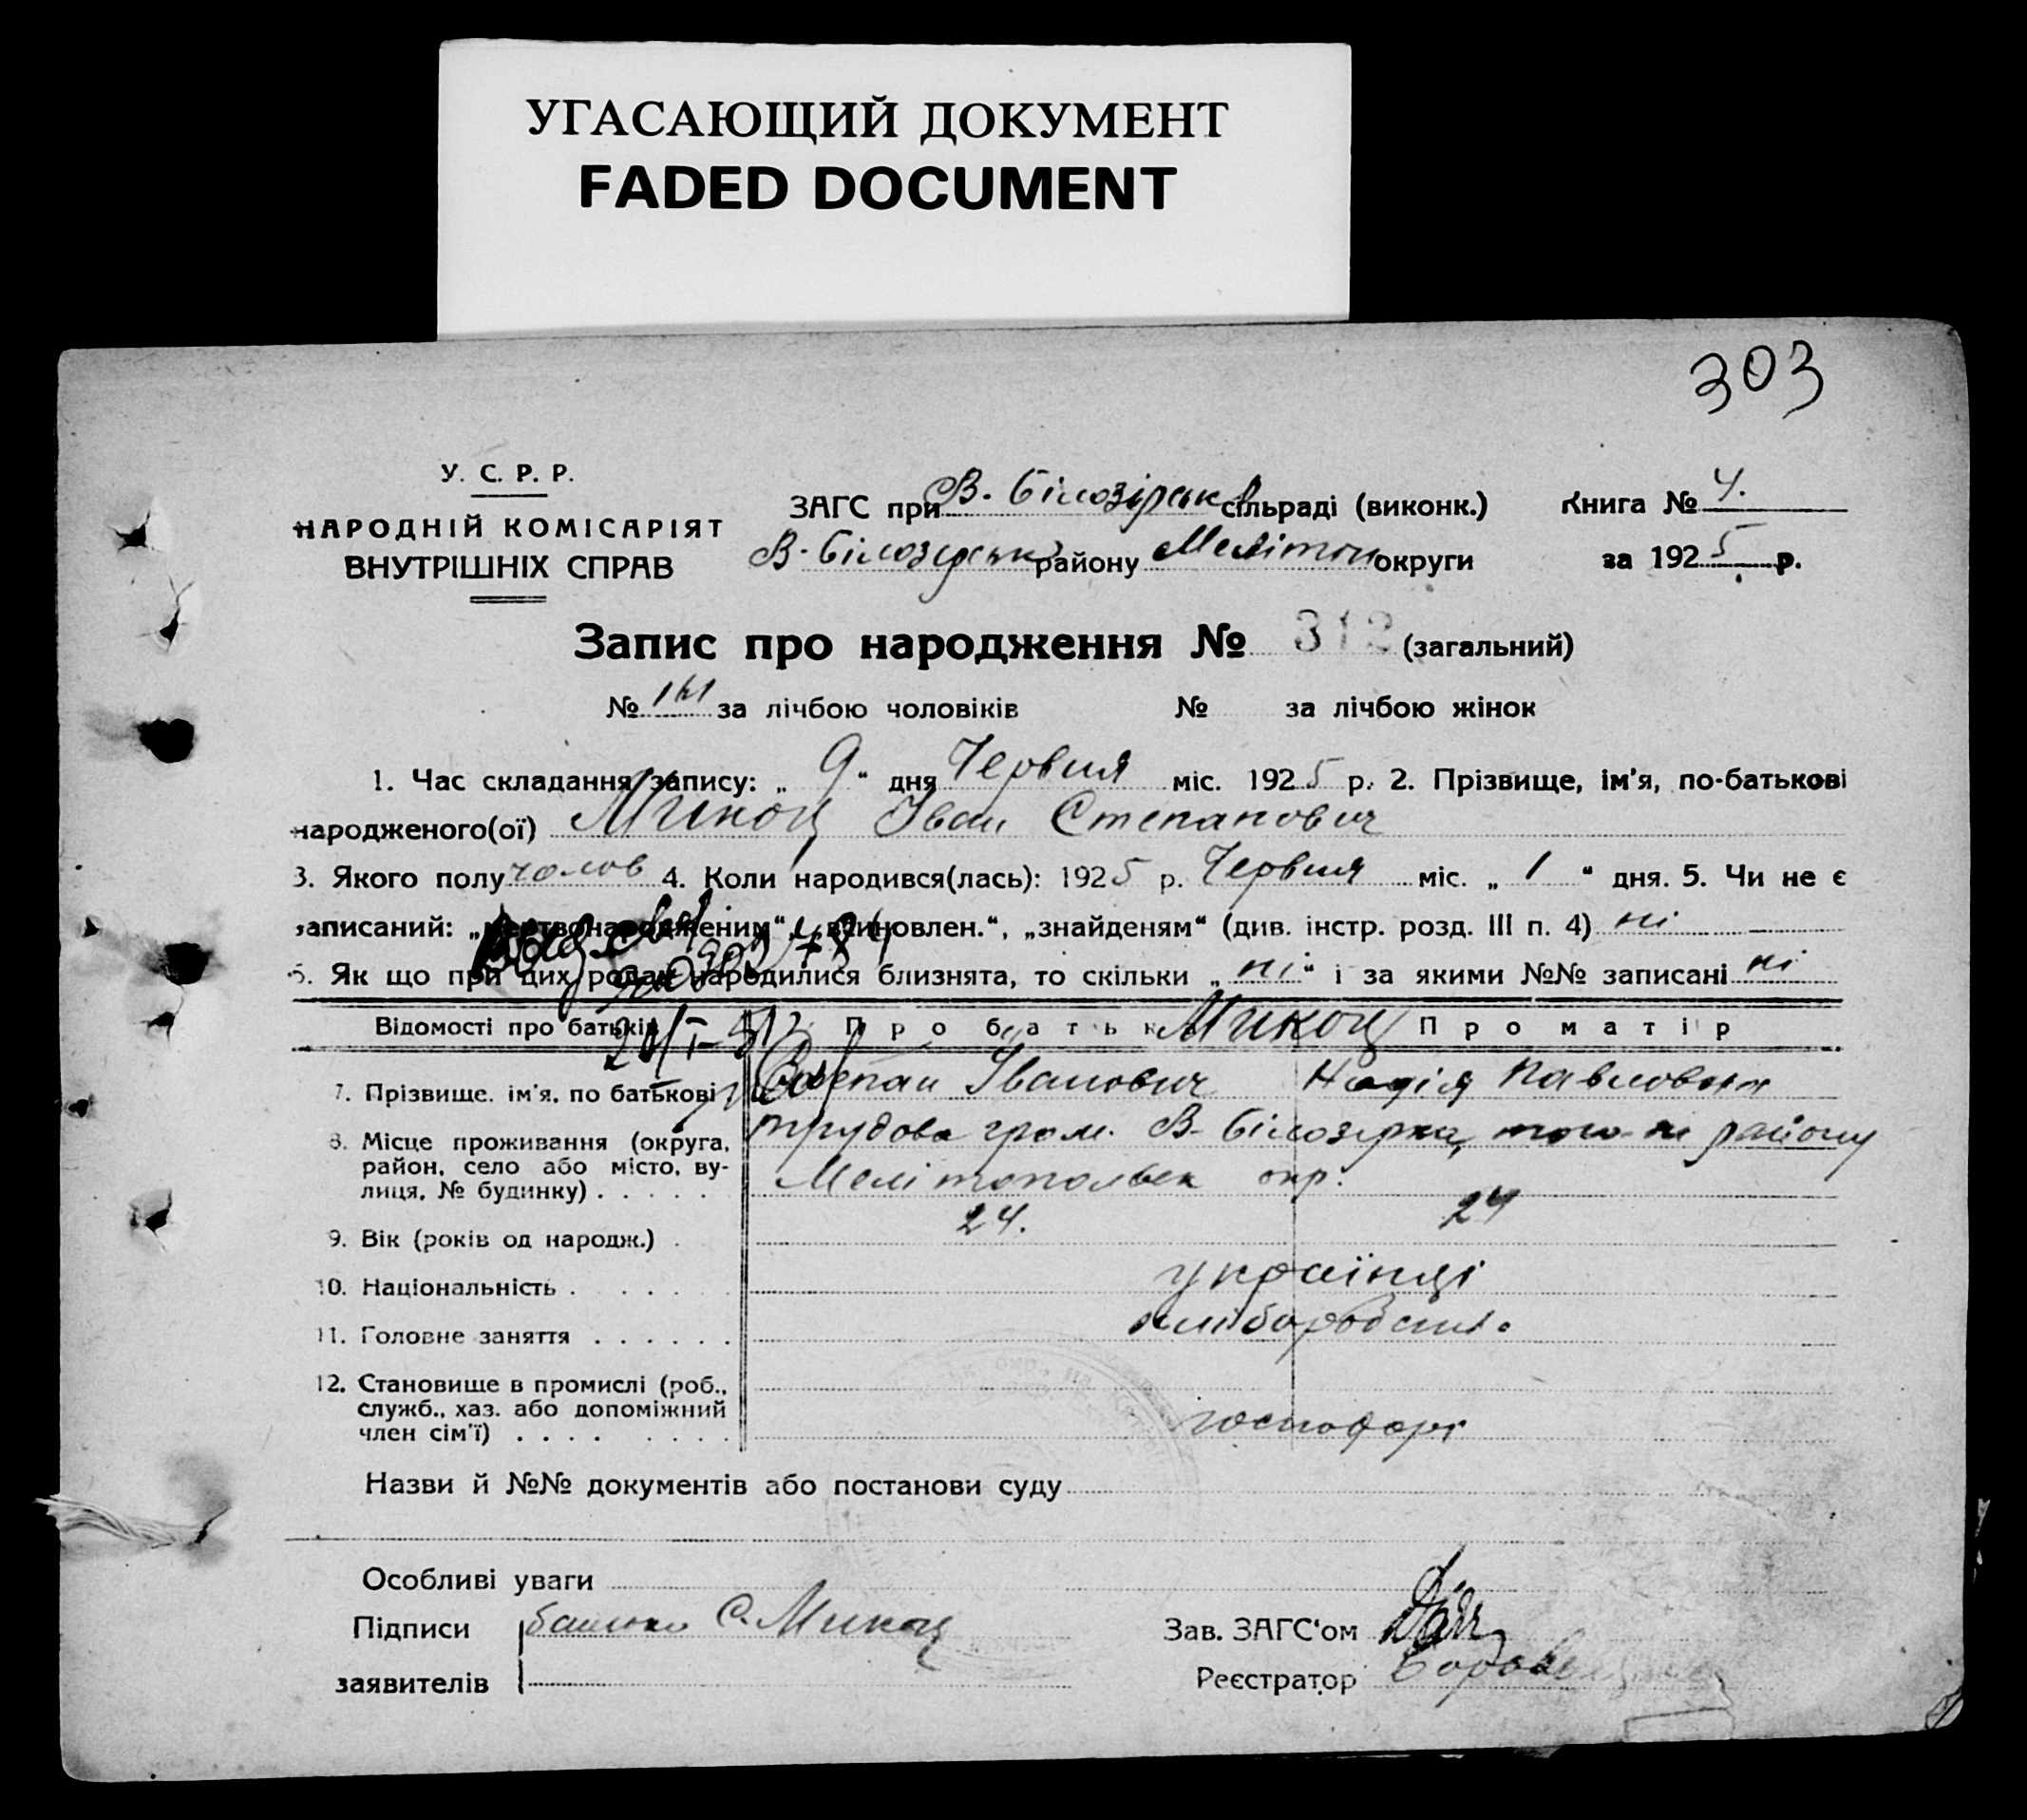 УГАСАЮЩИЙ ДОКУМЕНТ
FADED DOCUMENT
303
У. С. Р. Р.
НАРОДНІЙ КОМІСАРІЯТ
ВНУТРІШНІХ СПРАВ
ЗАГС при В. Білозірськ сільраді (виконк.)
Книга № 4.
В. Білозерськ району Мелітоп округи
за 1925 р.
Запис про народження № 312 (загальний)
№ 161 за лічбою чоловіків № за лічбою жінок
1. Час складання запису: „ 9 “ дня Червня міс. 1925 р. 2. Прізвище, ім’я, по-батькові
народженого(ої) Микоц Іван Степанович
3. Якого полу чолов 4. Коли народився(лась): 1925 р. Червня міс. „ 1 “ дня. 5. Чи не є
записаний: „мертвонародженим“, „вшновлен.“, „знайденям“ (див. інстр. розд. III п. 4) ні
6. Як що при цих родах народилися близнята, то скільки „ ні “ і за якими №№ записані ні
Відомості про батьків Про батька Микоц Про матір
7. Прізвище, ім’я, по батькові Степан Іванович Надія Павловна
8. Місце проживання (округа, трудова гром. В. Білозірка, того-ж району
район, село або місто, ву-
лиця, № будинку) . . . . . Мелітопольск окр.
9. Вік (років од народж.) . 24. 24
10. Національність . . . . . українці
11. Головне заняття . . . . . . хліборобств.
12. Становище в промислі (роб.,
служб., хаз. або допоміжний
член сім’ї) . . . . . . . . господарі
Назви й №№ документів або постанови суду
Особливі уваги
Підписи батько С. Микоц
Зав. ЗАГС‘ом
заявителів
Реєстратор